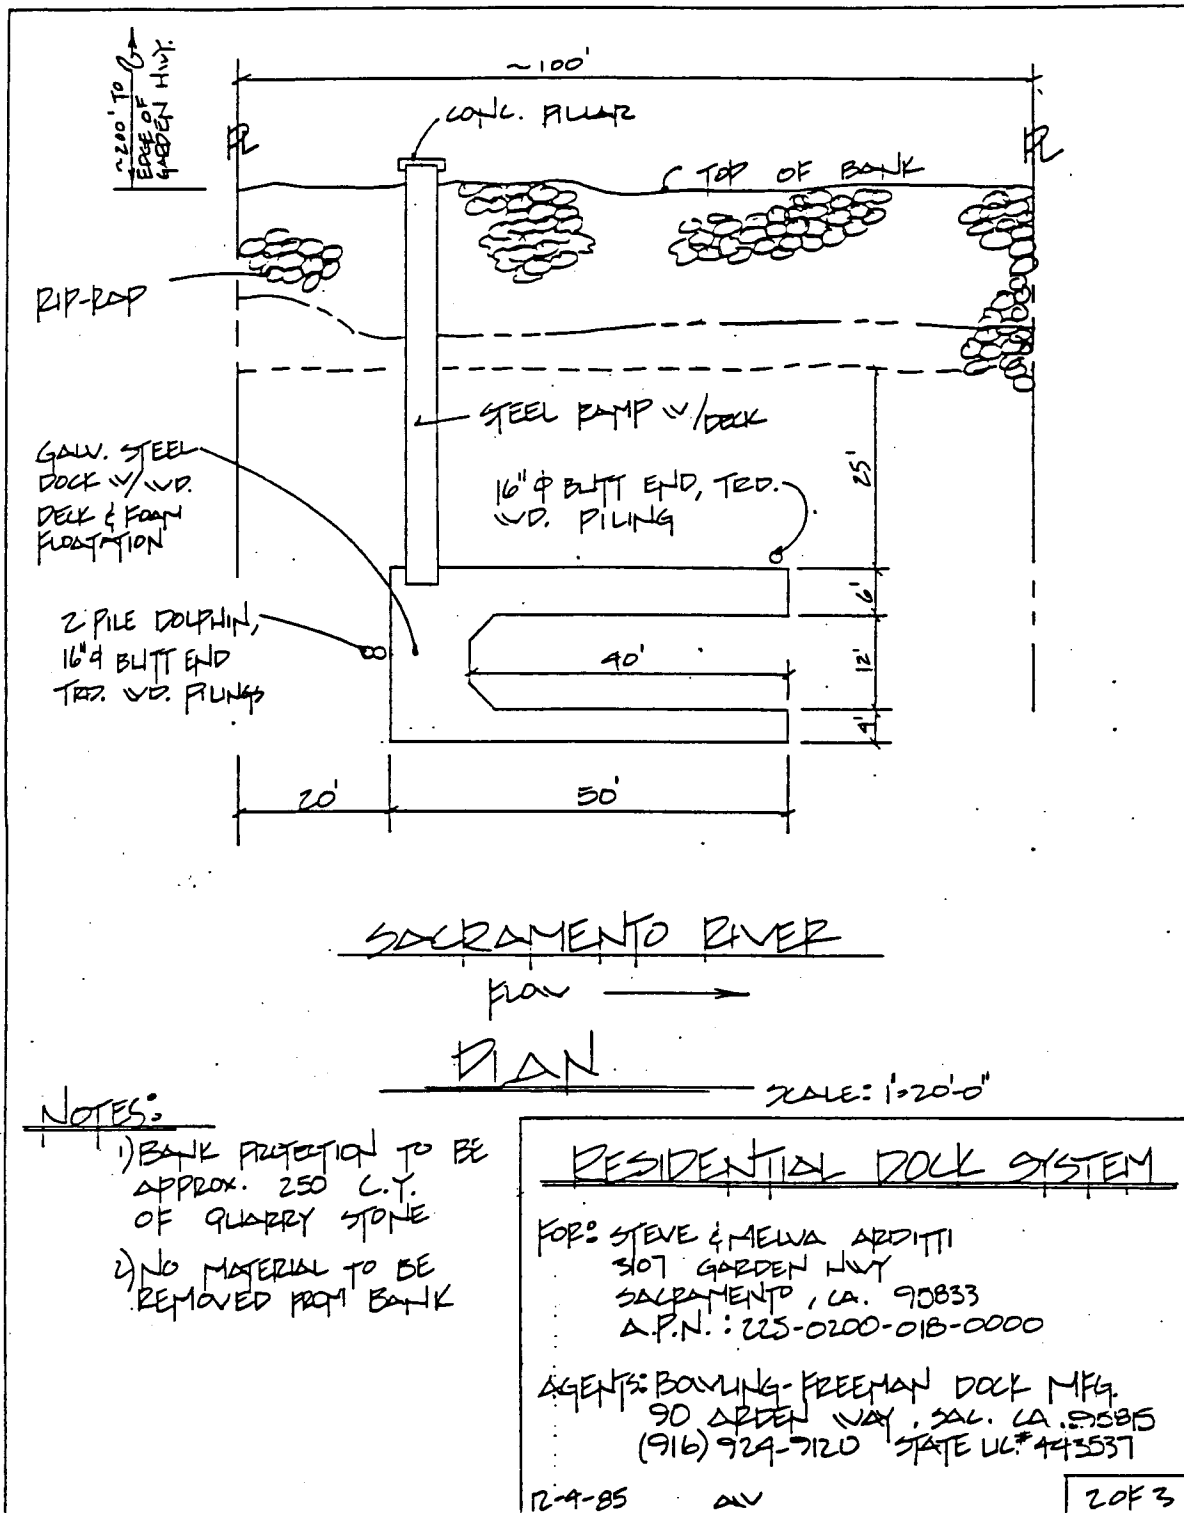 ~200' TO
EDGE OF
GARDEN HWY.
~100'
CONC. PILLAR
PL
PL
TOP OF BANK
RIP-RAP
STEEL RAMP W/DECK
GALV. STEEL
DOCK W/WD.
DECK & FOAM
FLOATATION
16"φ BUTT END, TRD.
WD. PILING
25'
6'
2 PILE DOLPHIN,
16"φ BUTT END
TRD. WD. PILINGS
40'
12'
4'
20'
50'
SACRAMENTO RIVER
FLOW
PLAN
SCALE: 1"=20'-0"
NOTES:
1) BANK PROTECTION TO BE
APPROX. 250 C.Y.
OF QUARRY STONE
2) NO MATERIAL TO BE
REMOVED FROM BANK
RESIDENTIAL DOCK SYSTEM
FOR: STEVE & MELVA ARDITTI
3107 GARDEN HWY
SACRAMENTO, CA. 95833
A.P.N.: 225-0200-018-0000
AGENTS: BOWLING-FREEMAN DOCK MFG.
90 ARDEN WAY, SAC. CA. 95815
(916) 924-9120 STATE LIC.# 443537
12-4-85
2 OF 3